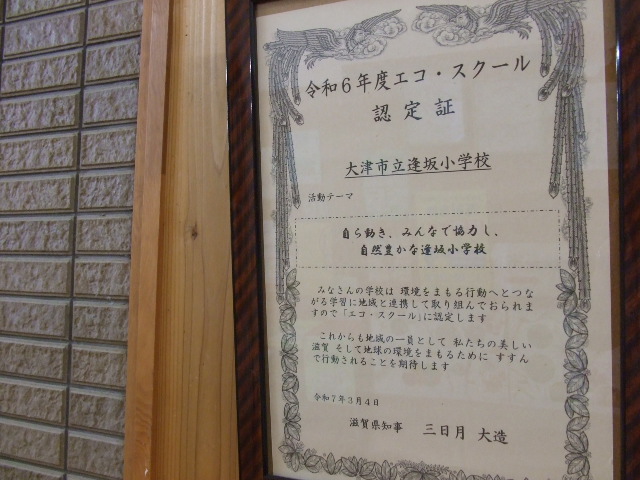 令和6年度エコ・スクール
認定証
大津市立逢坂小学校
活動テーマ
自ら動き、みんなで協力し、
自然豊かな逢坂小学校
みなさんの学校は 環境をまもる行動へとつな
がる学習に地域と連携して取り組んでおられま
すので「エコ・スクール」に認定します
これからも地域の一員として 私たちの美しい
滋賀 そして地球の環境をまもるために すすん
で行動されることを期待します
令和7年3月4日
滋賀県知事 三日月 大造